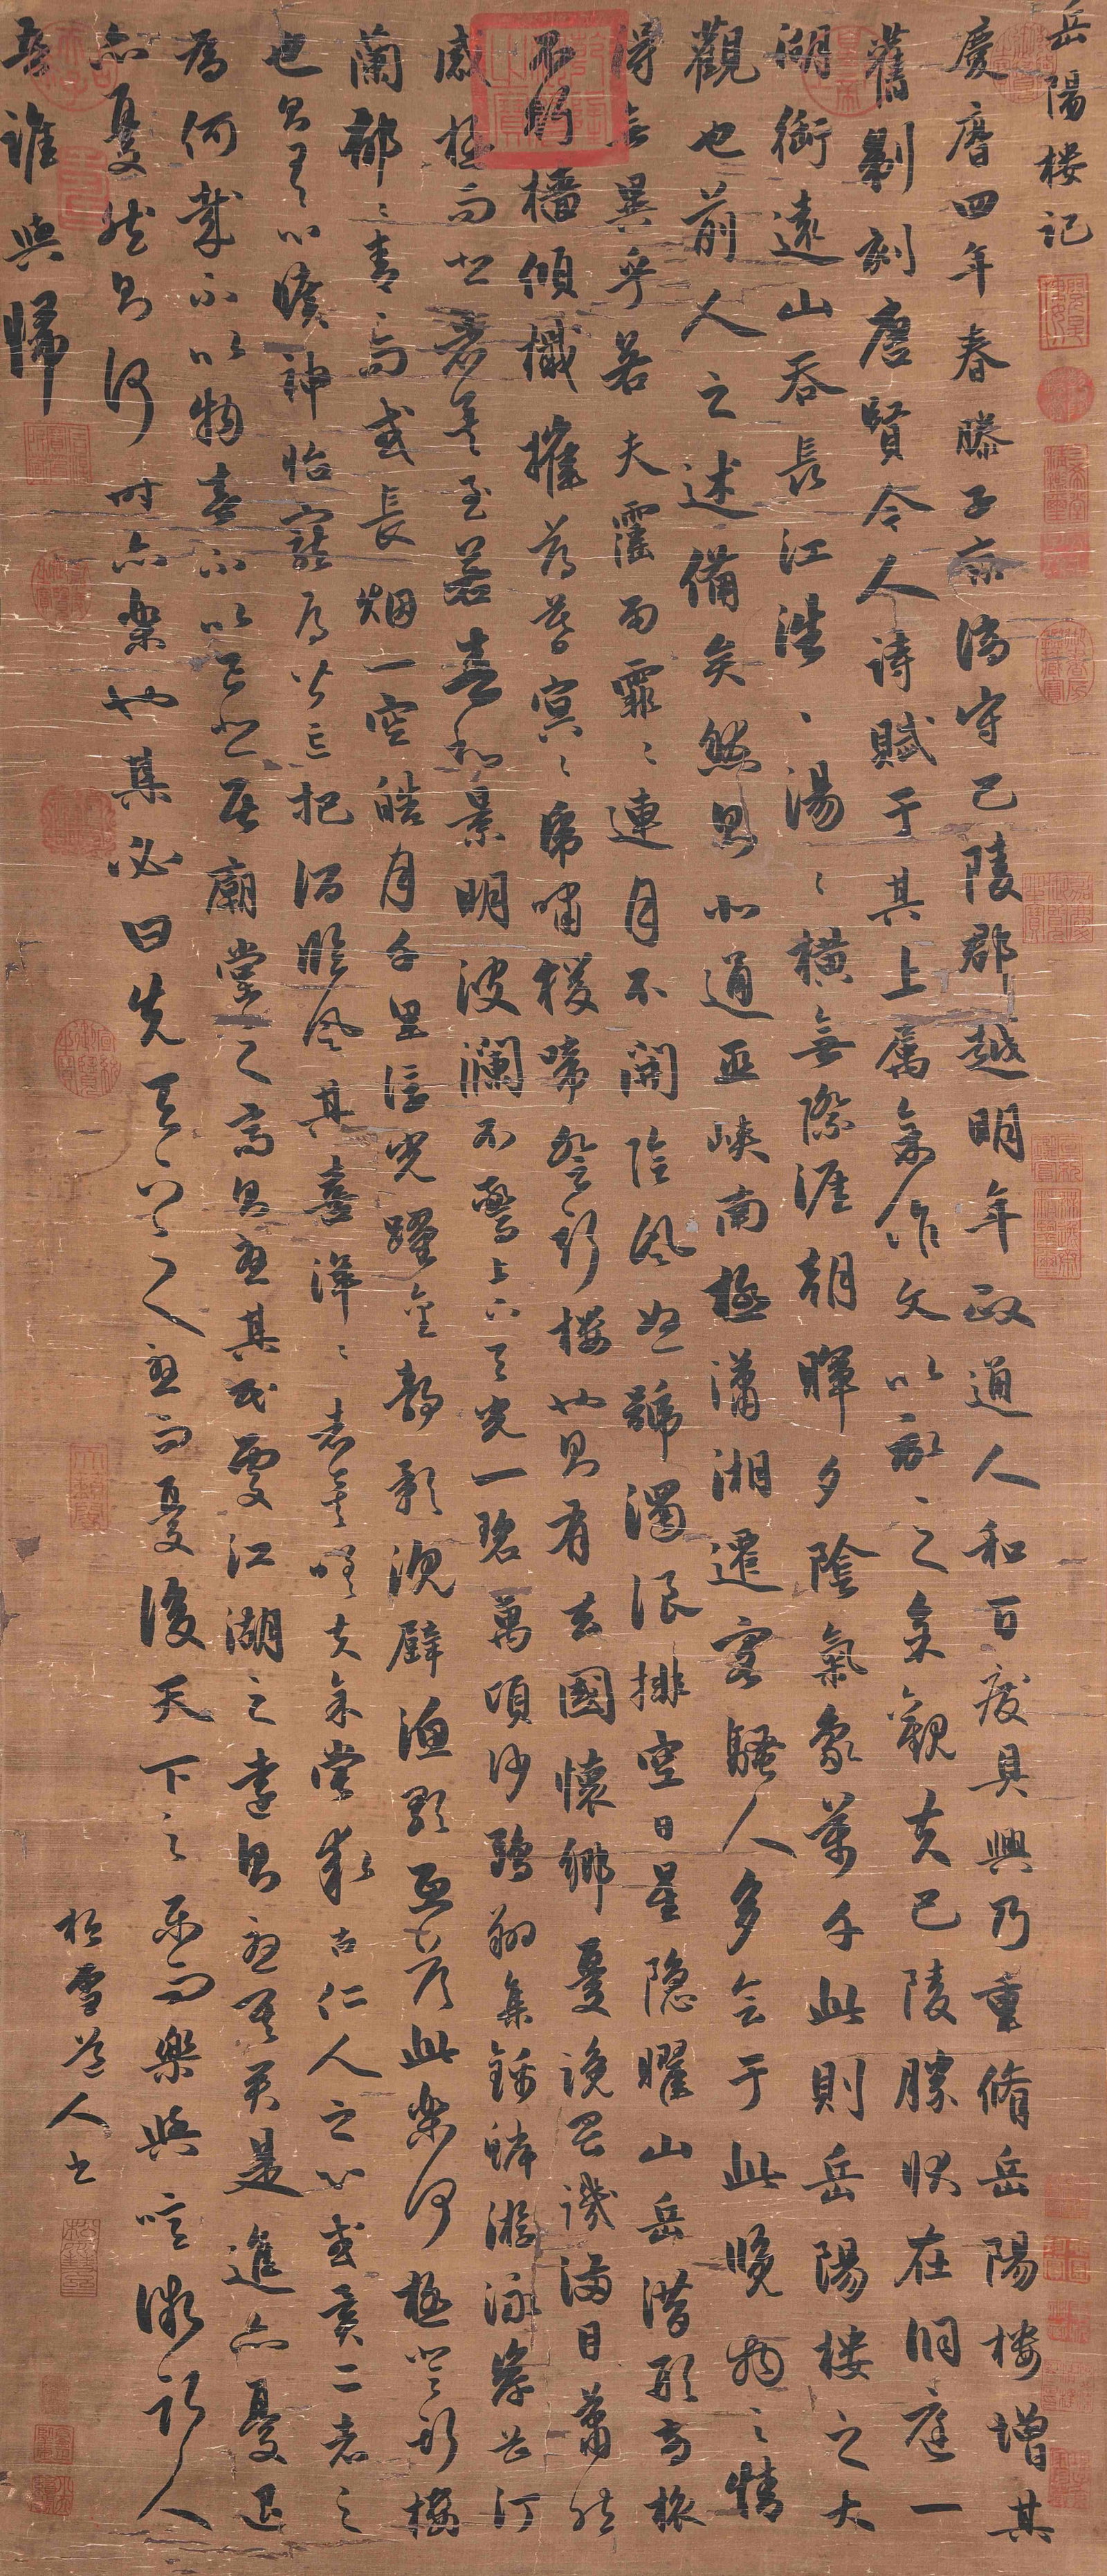 岳陽樓記
慶曆四年春滕子京謫守巴陵郡越明年政通人和百廢具興乃重脩岳陽樓增其
舊制刻唐賢今人詩賦于其上屬余作文以記之余觀夫巴陵勝狀在洞庭一
湖銜遠山吞長江浩、湯〻橫無際涯朝暉夕陰氣象萬千此則岳陽樓之大
觀也前人之述備矣然則北通巫峽南極瀟湘遷客騷人多會于此覽物之情
得無異乎若夫霪雨霏〻連月不開陰風怒號濁浪排空日星隱曜山岳潛形商旅
不行檣傾檝摧薄暮冥〻虎嘯猨啼登斯樓也則有去國懷鄉憂讒畏譏滿目蕭然
感極而悲者矣至若春和景明波瀾不驚上下天光一碧萬頃沙鷗翔集錦鱗游泳岸芷汀
蘭郁〻青〻而或長烟一空皓月千里浮光躍金靜影沉璧漁歌互答此樂何極登斯樓
也則有心曠神怡寵辱皆忘把酒臨風其喜洋〻者矣嗟夫余嘗求古仁人之心或異二者之
為何哉不以物喜不以己悲居廟堂之高則憂其民處江湖之遠則憂其君是進亦憂退
亦憂然則何時而樂也其必曰先天下之人憂而憂後天下之樂而樂與噫微斯人
吾誰與歸
松雪道人書